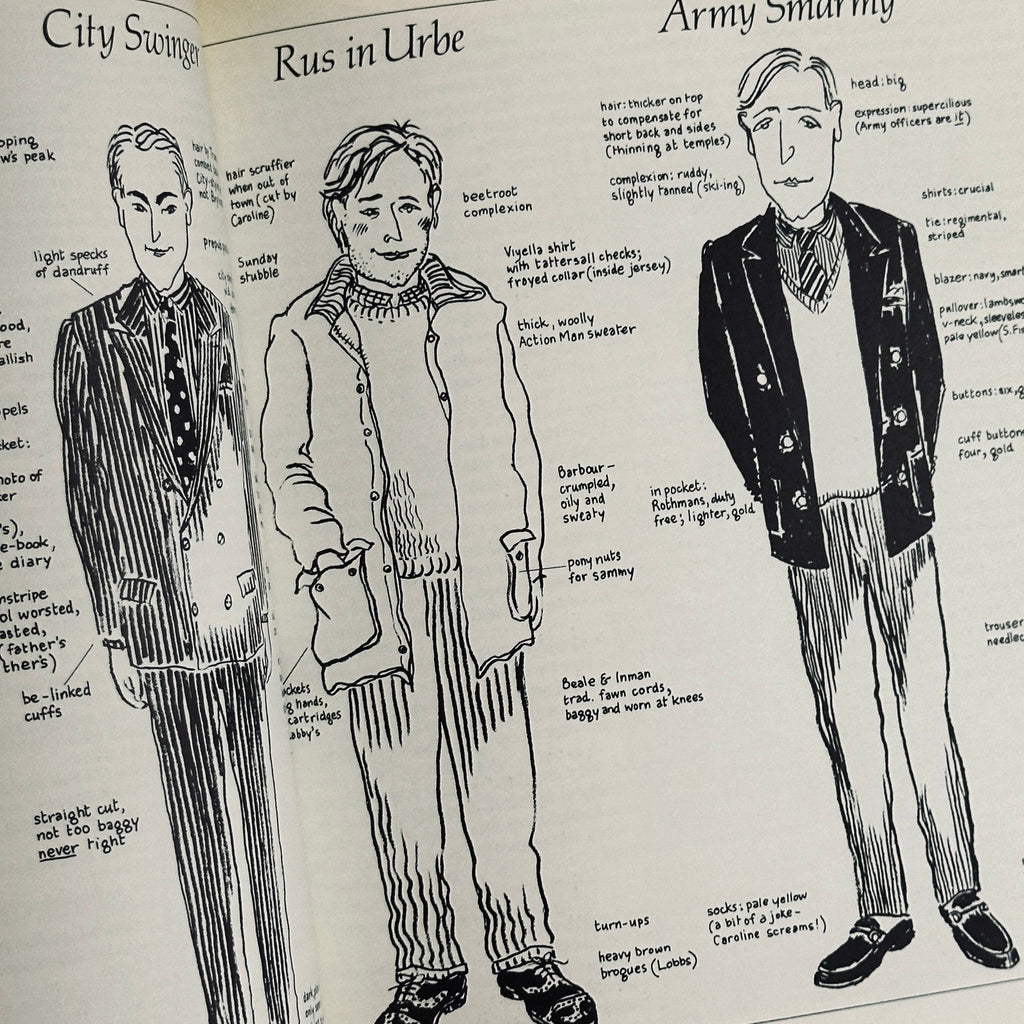 City Swinger
light specks
of dandruff
be-linked
cuffs
straight cut,
not too baggy
never tight
Rus in Urbe
hair scruffier
when out of
town (cut by
Caroline)
Sunday
stubble
beetroot
complexion
Viyella shirt
with tattersall checks;
frayed collar (inside jersey)
thick, woolly
Action Man sweater
Barbour –
crumpled,
oily and
sweaty
pony nuts
for sammy
hands,
cartridges
Beale & Inman
trad. fawn cords,
baggy and worn at knees
turn-ups
heavy brown
brogues (Lobbs)
Army Smarmy
hair: thicker on top
to compensate for
short back and sides
(thinning at temples)
complexion: ruddy,
slightly tanned (ski-ing)
head: big
expression: supercilious
(Army officers are it)
shirts: crucial
tie: regimental,
striped
blazer: navy, smart
pullover:
v-neck,
pale yellow
buttons: six,
cuff buttons
four, gold
in pocket:
Rothmans, duty
free; lighter, gold
socks: pale yellow
(a bit of a joke –
Caroline screams!)